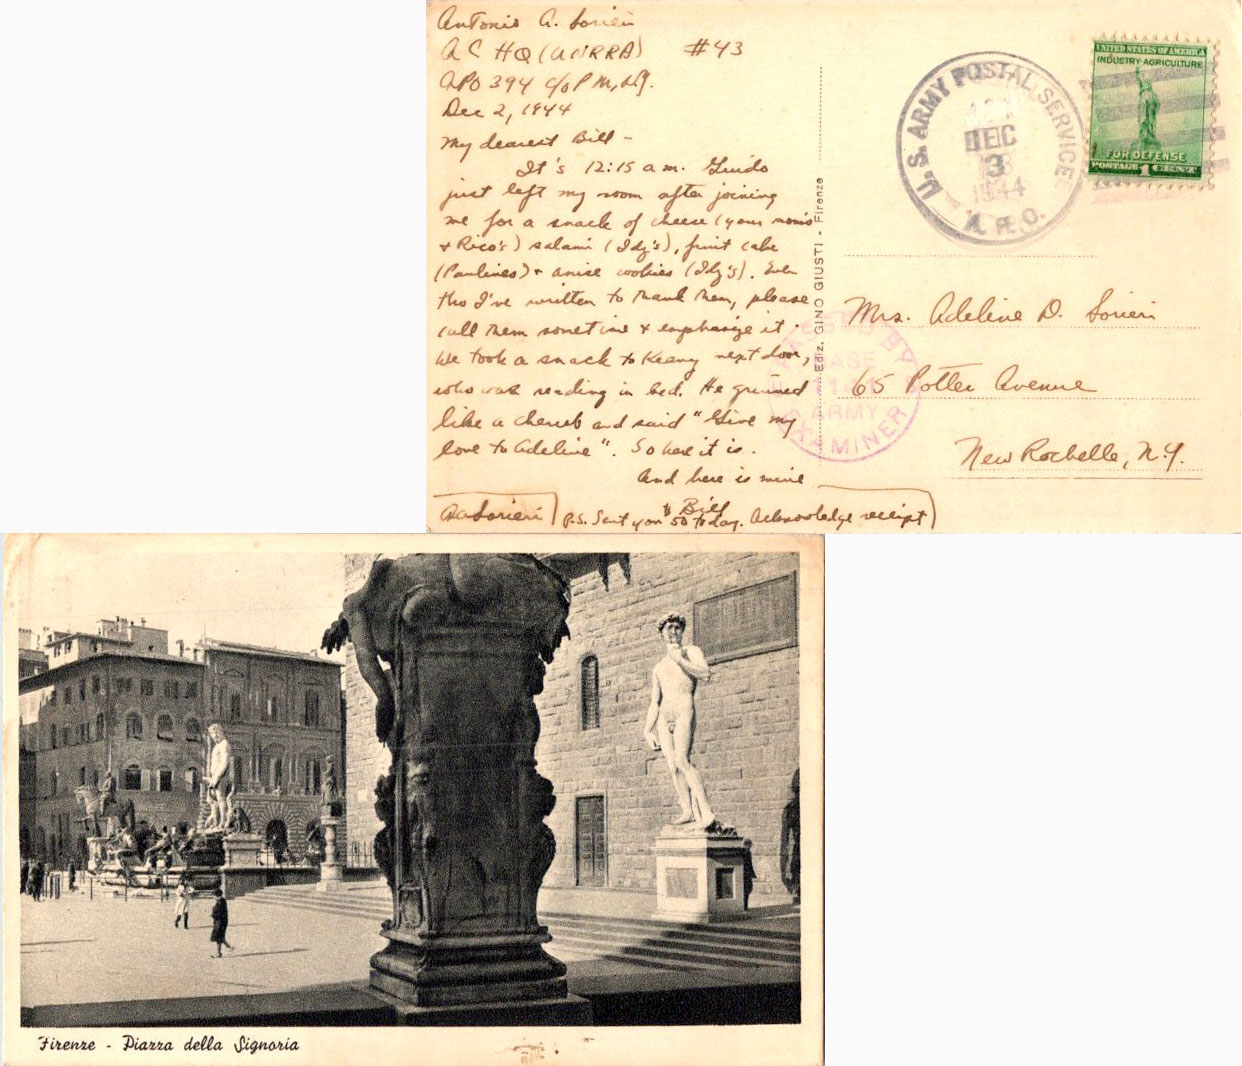 Antonio A. Sorieri
AC HQ (UNRRA) #43
APO 394 c/o P M, N.Y.
Dec 2, 1944
My dearest Bill -
It's 12:15 a.m. Guido
just left my room after joining
me for a snack of cheese (your mom's
+ Rico's) salami (Idy's), fruit cake
(Paulines) + anise cookies (Idy's). Even
tho I've written to thank them, please
call them sometime + emphasize it.
We took a snack to Keany next door,
who was reading in bed. He grinned
like a cherub and said "Give my
love to Adeline". So here it is.
And here is mine
Bill
AASorieri
P.S. Sent you $50 today. Acknowledge receipt
Ediz. GINO GIUSTI - Firenze
U.S. ARMY POSTAL SERVICE
DEC
3
1944
A.P.O.
UNITED STATES OF AMERICA
INDUSTRY AGRICULTURE
FOR DEFENSE
POSTAGE 1 CENT
Mrs. Adeline D. Sorieri
65 Potter Avenue
New Rochelle, N.Y.
PASSED BY
BASE
ARMY
EXAMINER
Firenze - Piazza della Signoria